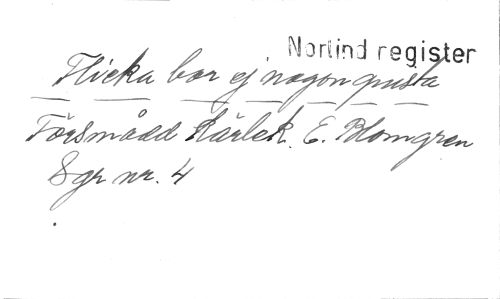 Norlind register
Flicka bor ej någon gnista
Försmådd Kärlek. E. Blomgren
Sgr nr. 4